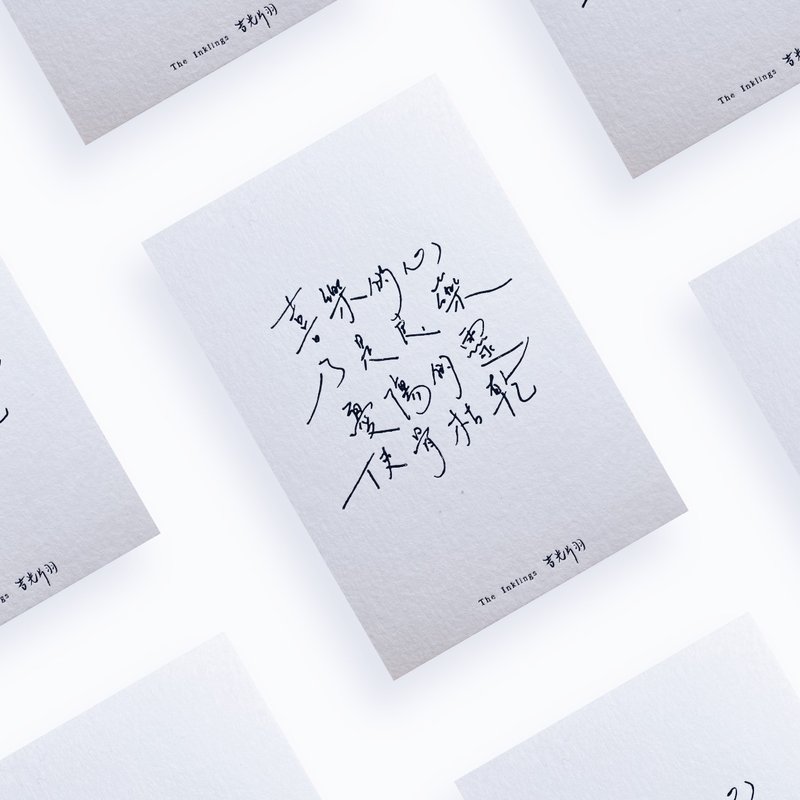 The Inklings 吉光片羽
The Inklings 吉光
喜樂的心
乃是良藥
憂傷的靈
使骨枯乾
The Inklings 吉光片羽
gs 吉光片羽